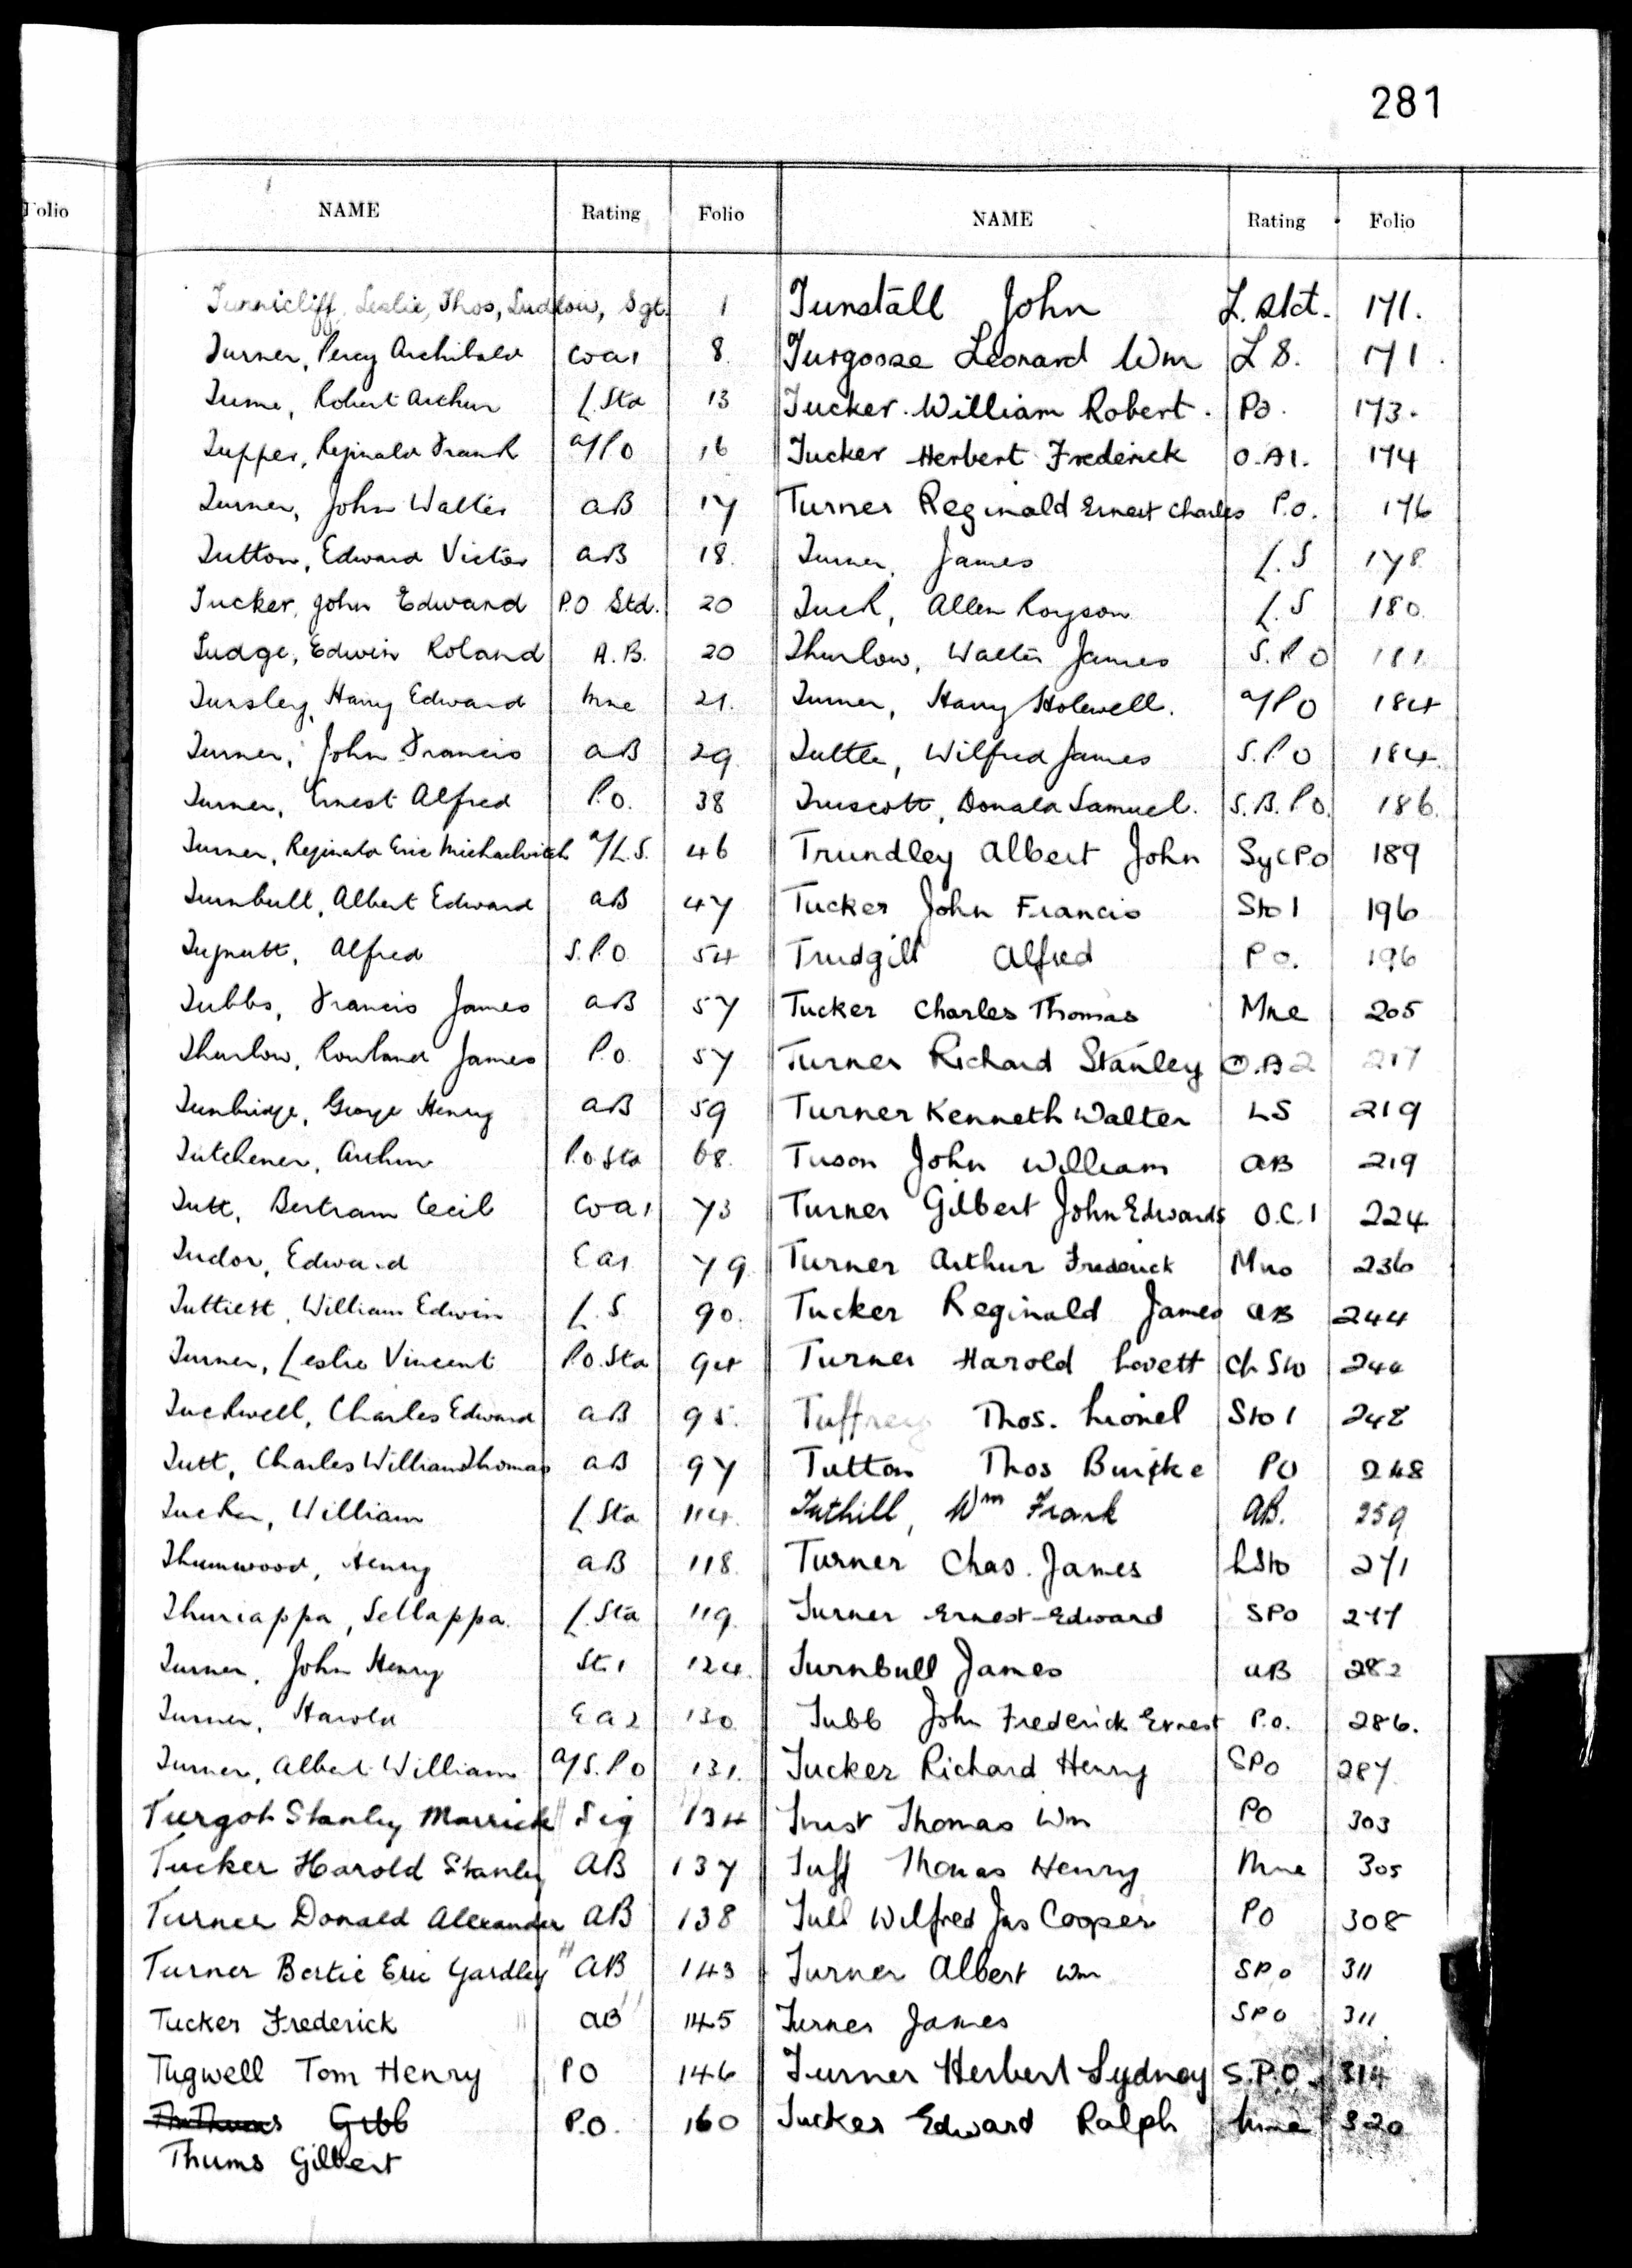 281
Folio
NAME Rating Folio
NAME Rating Folio
Tunnicliff, Leslie, Thos, Ludlow, Sgt. 1
Turner, Percy Archibald COA1 8.
Robert Arthur L.Sto 13
Tupper, Reginald Frank A/PO 16
Turner, John Walter AB 17
Tutton, Edward Victor AB 18.
Tucker, John Edward P.O Std. 20
Tudge, Edwin Roland A.B. 20
Tunsley, Harry Edward Mne 21.
Turner, John Francis AB 29
Turner, Ernest Alfred P.O. 38
Turner, Reginald Eric A/L.S. 46
Turnbull, Albert Edward AB 47
Alfred S.P.O 54
Tubbs, Francis James AB 57
Thurlow, Rowland James P.O. 57
Tunbridge, George Henry AB 59
Tutchener, Arthur P.O.Sto 68.
Tutt, Bertram Cecil COA1 73
Tudor, Edward EA1 79
Tuttiett, William Edwin L.S. 90.
Turner, Leslie Vincent P.O.Sto 94
Tuckwell, Charles Edward AB 95.
Tutt, Charles William Thomas AB 97
Tucker, William L.Sto 114.
Thumwood, Henry AB 118.
Thuriappa, Sellappa. L.Sta 119.
Turner, John Henry St.1 124.
Turner, Harold EA2 130
Turner, Albert William A/S.PO 131.
Turgot Stanley Marrick Sig 134
Tucker Harold Stanley AB 137
Turner Donald Alexander AB 138
Turner Bertie Eric Yardley AB 143
Tucker Frederick AB 145
Tugwell Tom Henry PO 146
Gibb P.O. 160
Thums Gilbert
Tunstall John L. Std. 171.
Turgoose Leonard Wm LS. 171.
Tucker. William Robert. PO. 173.
Tucker Herbert Frederick O.A1. 174
Turner Reginald Ernest Charles P.O. 176
Turner, James L.S 178
Tuck, Allen Royson L.S 180.
Thurlow, Walter James S.PO 181.
Turner, Harry Holewell. A/PO 184
Tuttle, Wilfred James S.P.O 184.
Truscott, Donald Samuel. S.B.P.O. 186.
Trundley Albert John SyCPO 189
Tucker John Francis Sto 1 196
Trudgill Alfred PO. 196
Tucker Charles Thomas Mne 205
Turner Richard Stanley O.A2 217
Turner Kenneth Walter LS 219
Tuson John William AB 219
Turner Gilbert John Edwards O.C.1 224
Turner Arthur Frederick Mne 236
Tucker Reginald James AB 244
Turner Harold Lovett Ch Sto 244
Tuffrey Thos. Lionel Sto 1 248
Tutton Thos Burke PO 248
Tuthill, Wm Frank AB. 259
Turner Chas. James LSto 271
Turner Ernest-Edward SPO 277
Turnbull James AB 282
Tubb John Frederick Ernest P.O. 286.
Tucker Richard Henry SPO 287
Trust Thomas Wm PO 303
Tuff Thomas Henry Mne 305
Tull Wilfred Jas Cooper PO 308
Turner Albert Wm SPO 311
Turner James SPO 311
Turner Herbert Sydney S.P.O. 314
Tucker Edward Ralph Mne 320